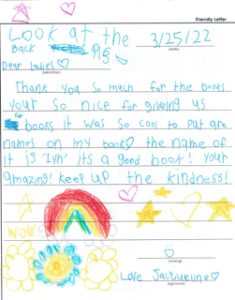 Friendly Letter
Look at the
Back
3/25/22
(Date)
Dear Ladies
(Salutation)
Thank you so much for the books
your so nice for giveing us
books it was so cool to put are
names on my book the name of
it is "Iyn" its a good book! your
amazing! keep up the kindness!
WOW
(Closing)
Love Jacqueline
(Signature)